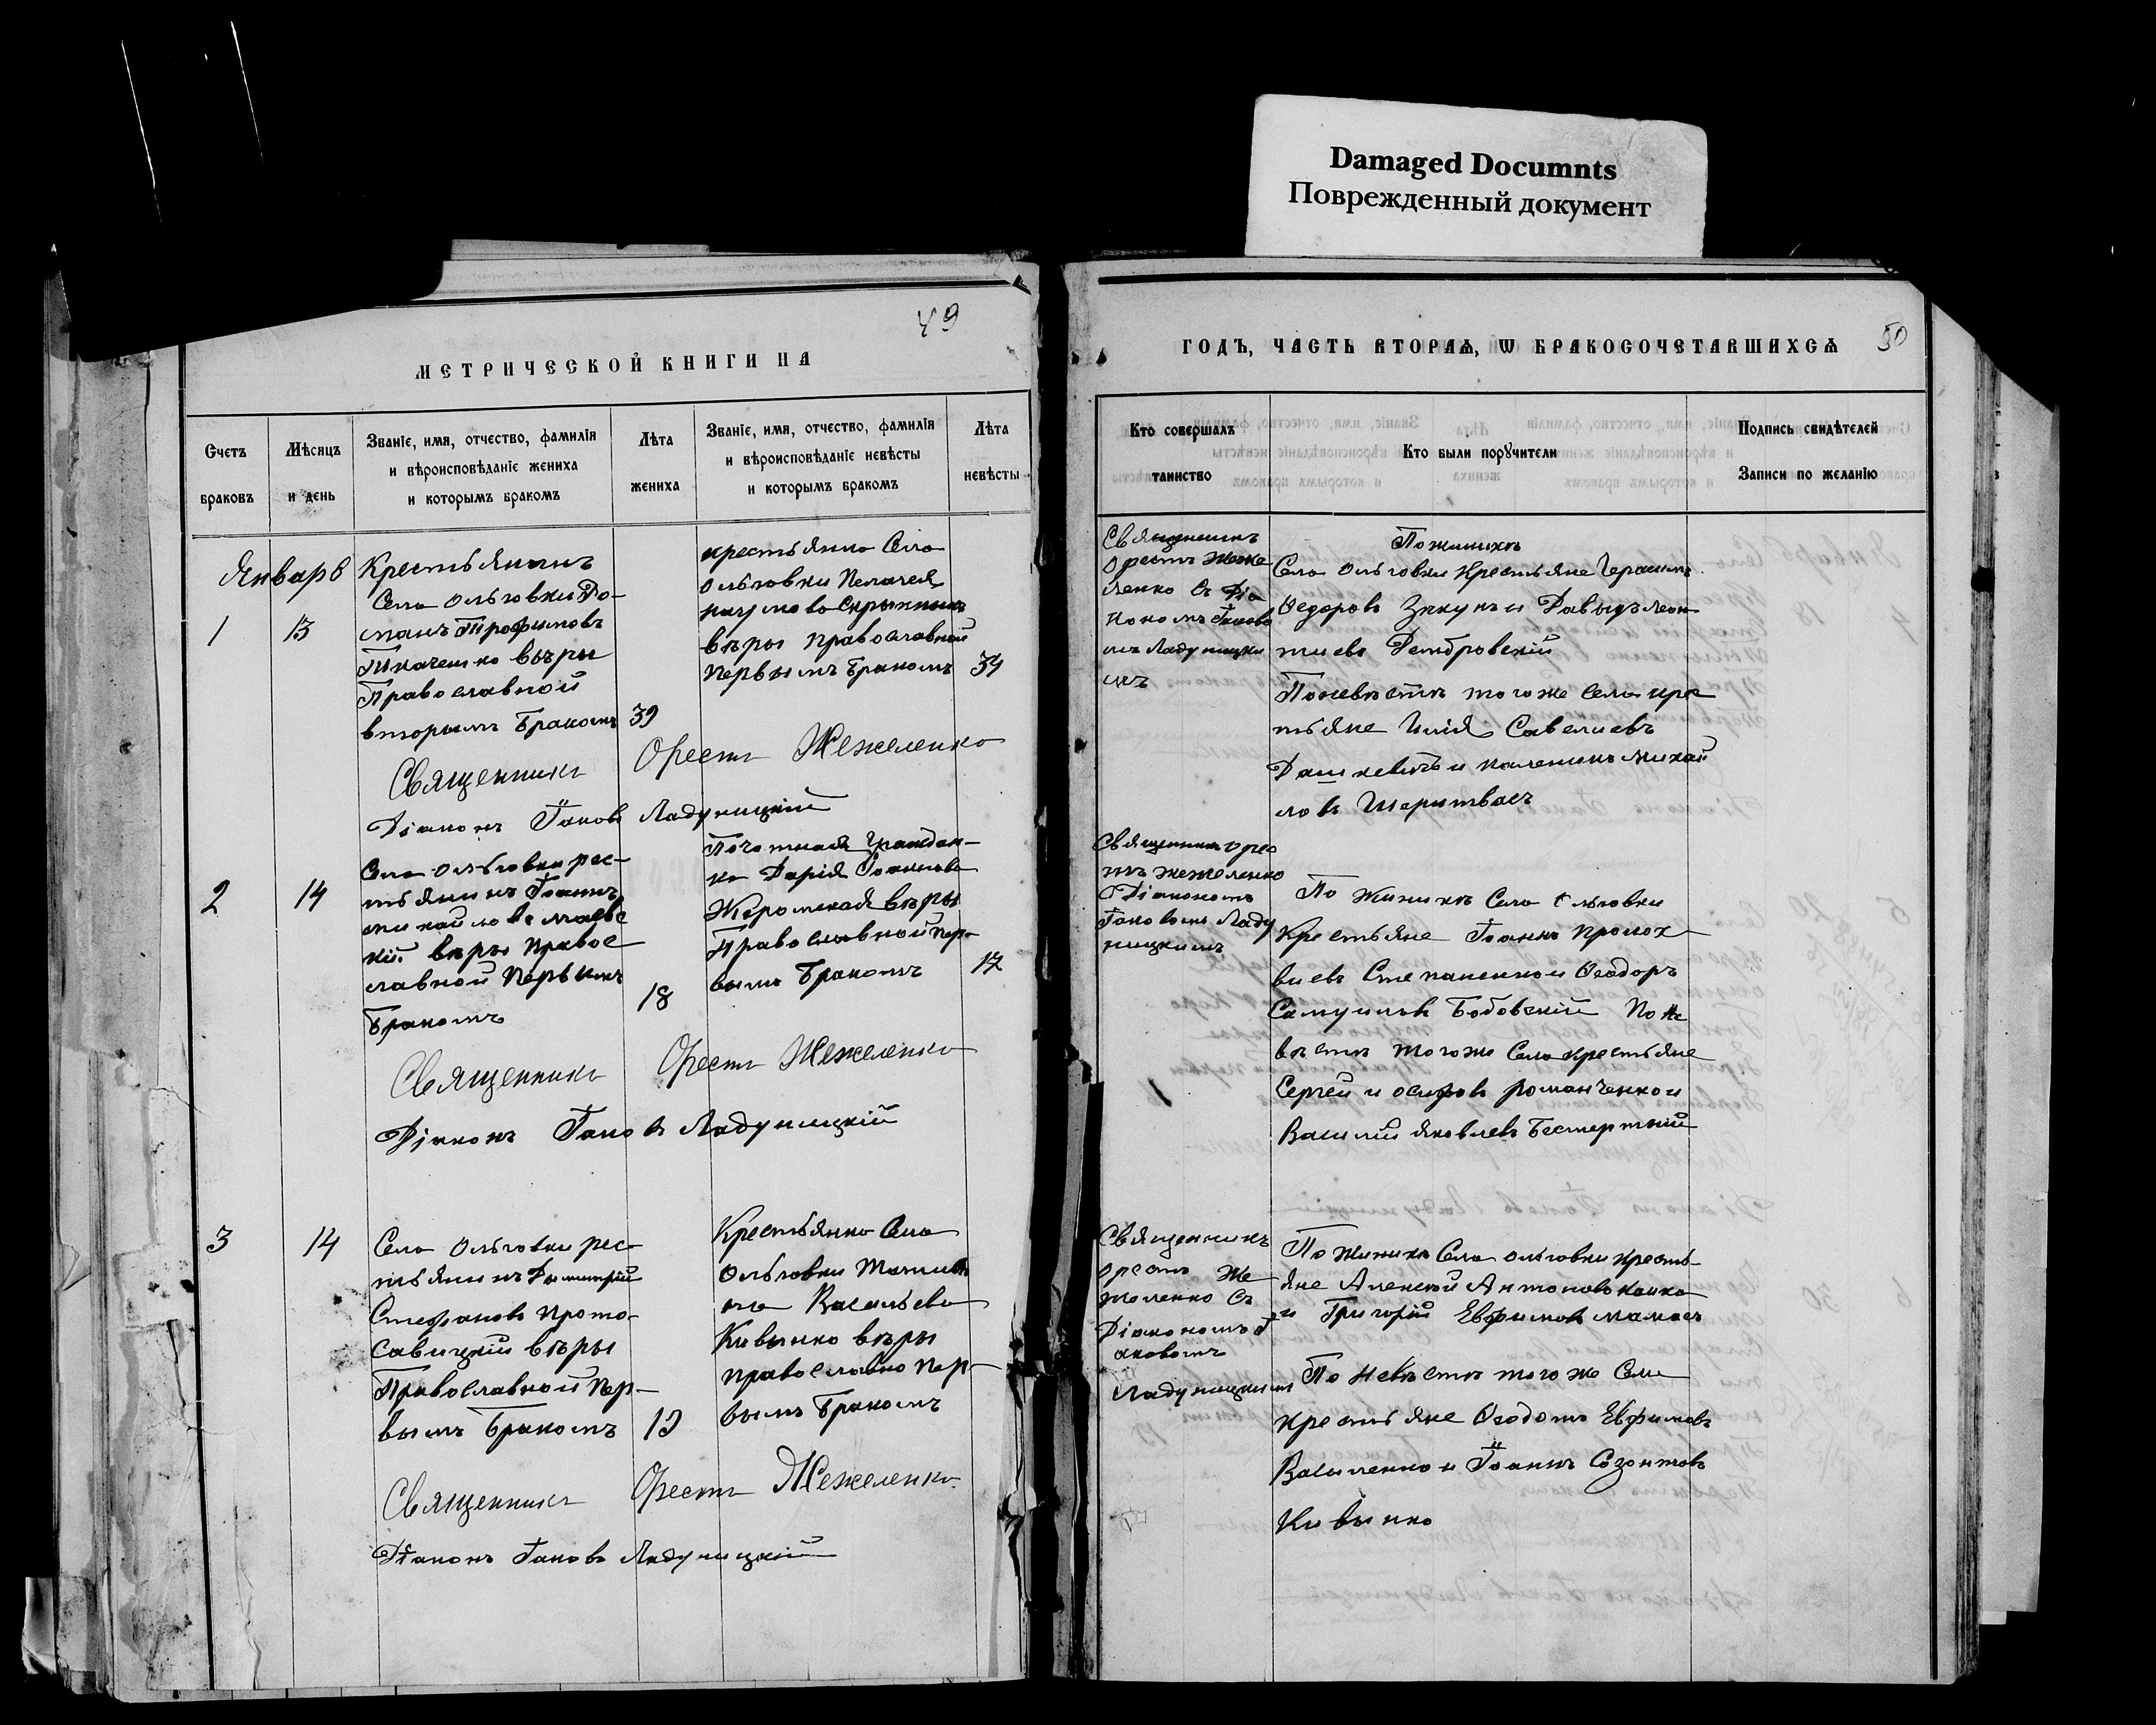 Damaged Documnts
Поврежденный документ
49
МЕТРИЧЕСКОЙ КНИГИ НА
Счетъ браковъ
Мѣсяцъ и день
Званіе, имя, отчество, фамилія
и вѣроисповѣданіе жениха
и которымъ бракомъ
Лѣта жениха
Званіе, имя, отчество, фамилія
и вѣроисповѣданіе невѣсты
и которымъ бракомъ
Лѣта невѣсты
Январь
1
13
Крестьянинъ
Села Ольговки Ро-
манъ Трофимовъ
Ткаченко вѣры
Православной
вторымъ Бракомъ
39
крестьянка Села
Ольговки Пелагея
Наумова
вѣры православной
Первымъ Бракомъ
34
Священникъ Орестъ Жежеленко
Діаконъ Іаковъ Ладуницкій
2
14
Села Ольговки крес-
тьянинъ Іоаннъ
Михайловъ Маевс
кій вѣры Правос
лавной Первымъ
Бракомъ
18
Почотная Граждан-
ка Дарія Іоаннова
Жеромская вѣры
Православной Пер-
вымъ Бракомъ
17
Священникъ Орестъ Жежеленко
Діаконъ Іаковъ Ладуницкій
3
14
Села Ольговки крес
тьянинъ Димитрій
Стефановъ Прото-
савицкій вѣры
Православной Пер-
вымъ Бракомъ
19
Крестьянка Села
Ольговки Татия
на Васильева
Кивенко вѣры
православно Пер-
вымъ Бракомъ
Священникъ Орестъ Жежеленко
Діаконъ Іаковъ Ладуницкій
50
ГОДЪ, ЧАСТЬ ВТОРАѦ, Ѡ БРАКОСОЧЕТАВШИХСѦ
Кто совершалъ
таинство
Кто были порꙋчители
Подпись свидѣтелей
Записи по желанію
Священникъ
Орестъ Жеже
ленко съ Діа
кономъ Іаково
мъ Ладуницки
мъ
По жинихѣ
Села Ольговки Крестьяне Герасимъ
Ѳедоровъ и Давыдъ Леон
тиевъ Домбровскій
По невѣстѣ того же Села крес
тьяне Илія Савелиевъ
Дашкевичъ и Каленикъ Михай
ловъ
Священникъ Орес
тъ Жежеленко
С Діакономъ
Іаковомъ Ладу
ницкимъ
По Жинихѣ Села Ольговки
Крестьяне Іоаннъ Прокох
виевъ Степаненко и Ѳеодоръ
Самуиловъ Бобовскій По Не
вѣстѣ того же Села крестьяне
Сергей Осиповъ Романченко и
Василій Яковлевъ Бесмертный
Священникъ
Орестъ Же
желенко съ
Діакономъ І
аковомъ
Ладуницкимъ
По Жинихѣ Села Ольговки Кресть-
яне Алексей Антоновъ
и Григорій Евфимовъ
По Невѣстѣ того же Села
крестьяне Ѳеодотъ Евфимовъ
Василенко и Іоаннъ Созонтовъ
Кивенко